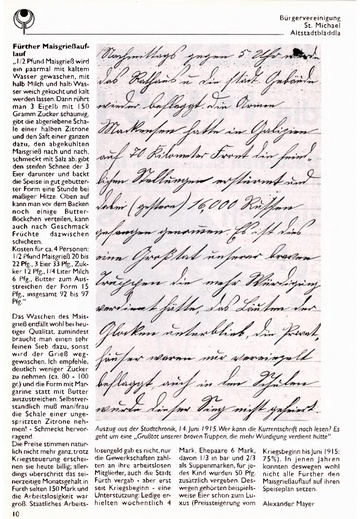 Bürgervereinigung
St. Michael
Altstadtbläddla
Fürther Maisgrießauf-
lauf
„1/2 Pfund Maisgrieß wird
ein paarmal mit kaltem
Wasser gewaschen, mit
halb Milch und halb Was-
ser weich gekocht und kalt
werden lassen. Dann rührt
man 3 Eigelb mit 150
Gramm Zucker schaumig,
gibt die abgeriebene Scha-
le einer halben Zitrone
und den Saft einer ganzen
dazu, den abgekühlten
Maisgrieß nach und nach,
schmeckt mit Salz ab, gibt
den steifen Schnee der 3
Eier darunter und backt
die Speise in gut gebutter-
ter Form eine Stunde bei
mäßiger Hitze. Oben auf
kann man vor dem Backen
noch einige Butter-
flöckchen verteilen, kann
auch nach Geschmack
Früchte dazwischen
schichten.
Kosten für ca. 4 Personen:
1/2 Pfund Maisgrieß 20 bis
22 Pfg., 3 Eier 33 Pfg., Zuk-
ker 12 Pfg., 1/4 Liter Milch
6 Pfg., Butter zum Aus-
streichen der Form 15
Pfg., insgesamt 92 bis 97
Pfg.“
Das Waschen des Mais-
grieß entfällt wohl bei heu-
tiger Qualität, zumindest
braucht man einen sehr
feinen Sieb dazu, sonst
wird der Grieß weg-
gewaschen. Ich empfehle,
deutlich weniger Zucker
zu nehmen (ca. 80 - 100
gr.) und die Form mit Mar-
garine statt mit Butter
auszustreichen. Selbstver-
ständlich muß man/frau
die Schale einer unge-
spritzten Zitrone neh-
men! - Schmeckt hervor-
ragend.
Die Preise stimmen natur-
lich nicht mehr ganz, trotz
Kriegsteuerung erschei-
nen sie heute billig; aller-
dings überschritt das sei-
nerzeitige Monatsgehalt in
Fürth selten 150 Mark und
die Arbeitslosigkeit war
groß. Staatliches Arbeits-
Nachmittags gegen 5 Uhr wurde
das Rathaus u. die städt. Gebäude
wieder beflaggt, die Armee
Mackensen hatte in Galizien
auf 70 Kilometer Front die feind
lichen Stellungen erstürmt und
dabei (gestern) 16,000 Russen
gefangen genommen. Es ist das
eine Großtat unserer braven
Truppen, die mehr Würdigung
verdient hätte, das Läuten der
Glocken unterblieb, die Privat
häuser waren nur vereinzelt
beflaggt, auch in den Schulen
wurde dieser Sieg nicht gefeiert.
Auszug aus der Stadtchronik, 14. Juni 1915. Wer kann die Kurrentschrift noch lesen? Es
geht um eine „Großtat unserer braven Truppen, die mehr Würdigung verdient hätte“
losengeld gab es nicht, nur
die Gewerkschaften zahl-
ten an ihre arbeitslosen
Mitglieder, auch die Stadt
Fürth vergab - aber erst
seit Kriegsbeginn - eine
Unterstützung: Ledige er-
hielten wöchentlich 4
Mark, Ehepaare 6 Mark,
davon 1/3 in bar und 2/3
als Suppenmarken, für je-
des Kind wurden 50 Pfg.
zusätzlich vergeben. Des-
wegen gehörten beispiels-
weise Eier schon zum Lu-
xus (Preissteigerung vom
Kriegsbeginn bis Juni 1915:
75%). In jenen Jahren
konnten deswegen wohl
nicht alle Fürther den
Maisgrießauflauf auf ihren
Speiseplan setzen.
Alexander Mayer
10